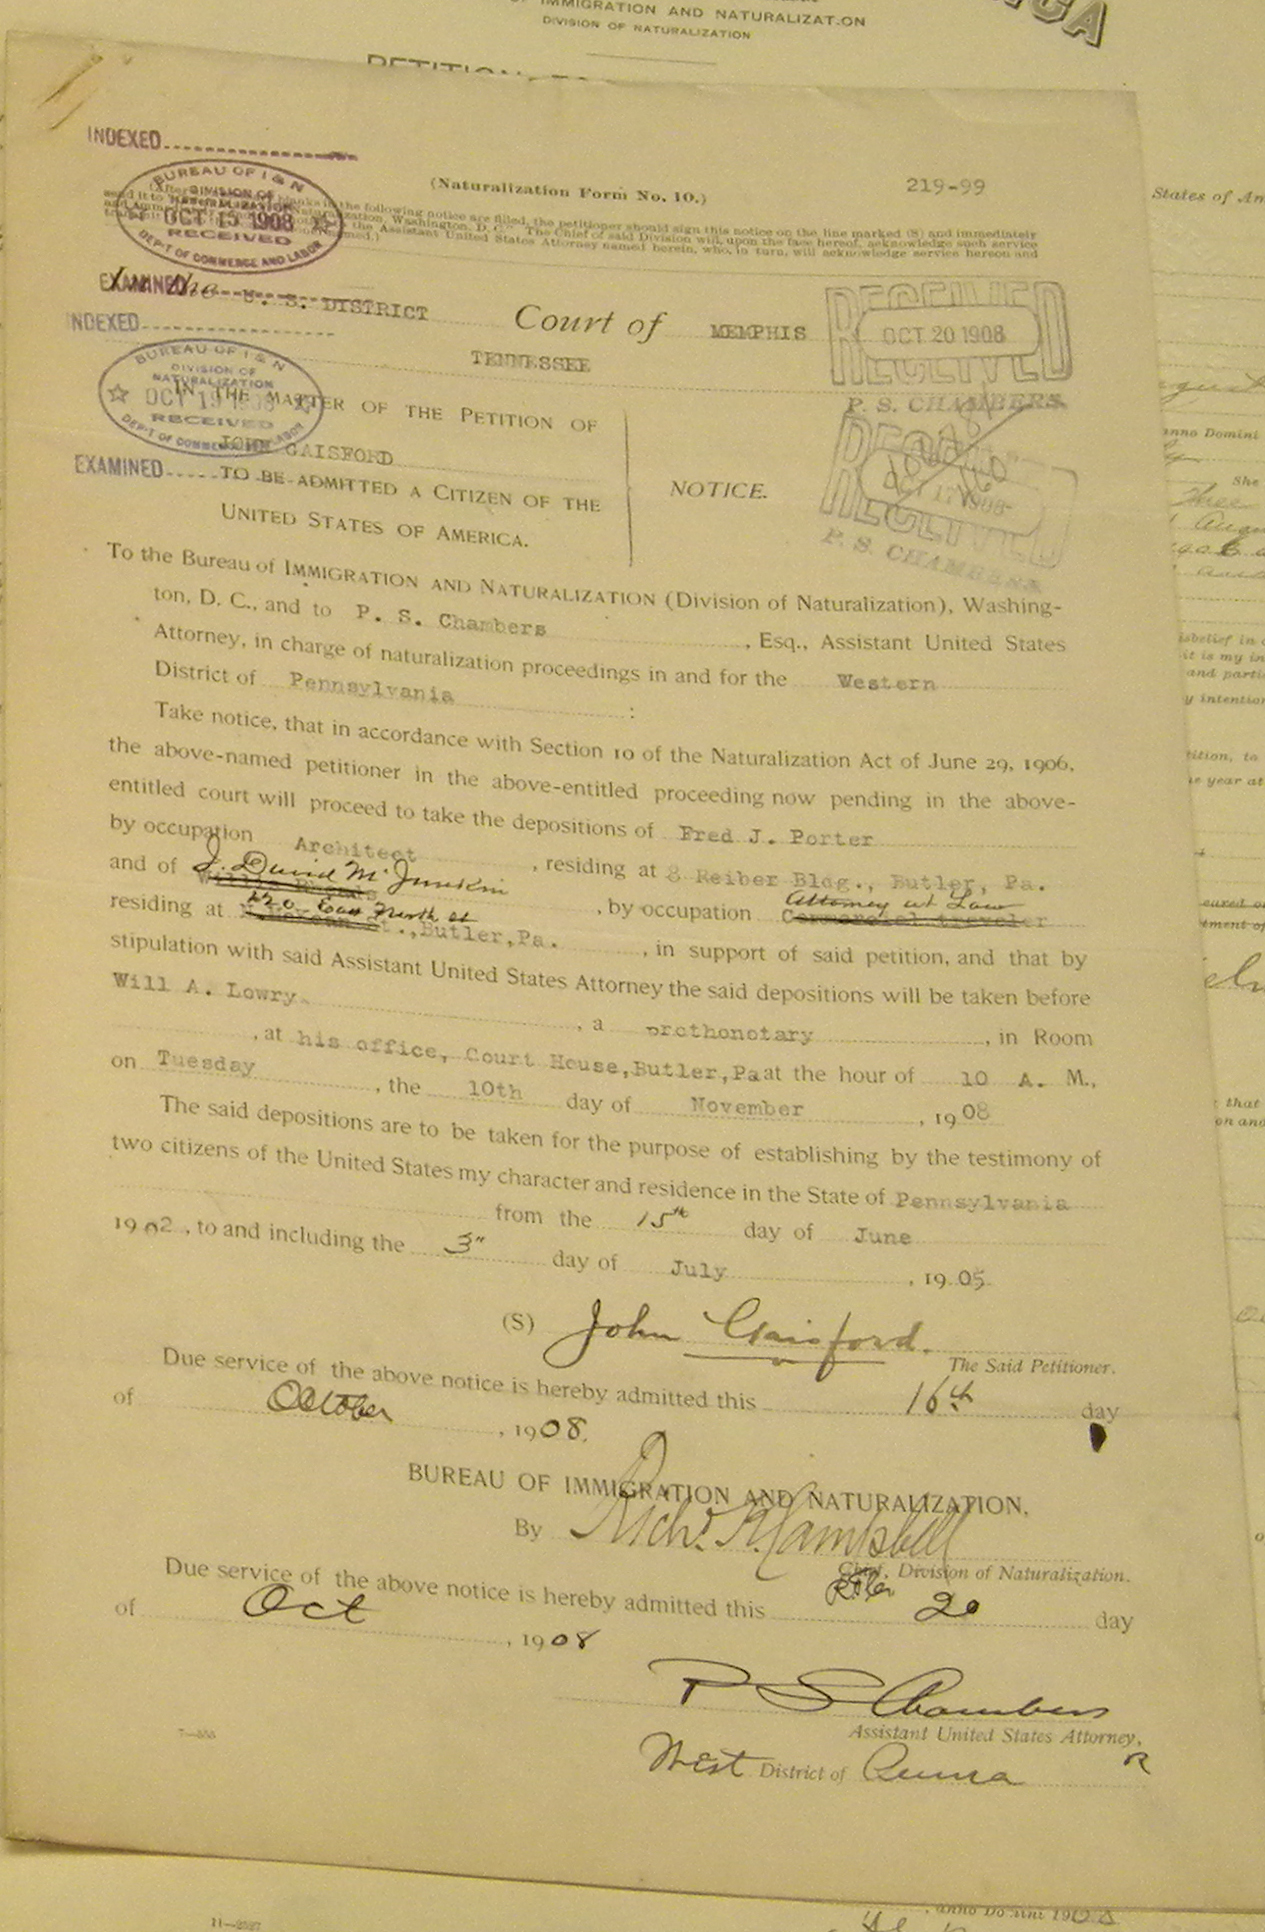 OF IMMIGRATION AND NATURALIZATION
DIVISION OF NATURALIZATION
INDEXED
BUREAU OF I & N
DIVISION OF
NATURALIZATION
OCT 15 1908
RECEIVED
DEP'T OF COMMERCE AND LABOR
(Naturalization Form No. 10.)
219-99
blanks in the following notice are filled, the petitioner should sign this notice on the line marked (S) and immediately
Washington, D. C. The Chief of said Division will, upon the face hereof, acknowledge such service
the Assistant United States Attorney named herein, who, in turn, will acknowledge service hereon and
EXAMINED
In the U. S. DISTRICT Court of MEMPHIS
TENNESSEE
RECEIVED
OCT 20 1908
P. S. CHAMBERS
INDEXED
BUREAU OF I & N
DIVISION OF
NATURALIZATION
OCT 19 1908
RECEIVED
DEP'T OF COMMERCE AND LABOR
RECEIVED
OCT 17 1908
P. S. CHAMBERS
IN THE MATTER OF THE PETITION OF
JOHN GAISFORD
EXAMINED
TO BE ADMITTED A CITIZEN OF THE
UNITED STATES OF AMERICA.
NOTICE.
To the Bureau of IMMIGRATION AND NATURALIZATION (Division of Naturalization), Washing-
ton, D. C., and to P. S. Chambers, Esq., Assistant United States
Attorney, in charge of naturalization proceedings in and for the Western
District of Pennsylvania :
Take notice, that in accordance with Section 10 of the Naturalization Act of June 29, 1906,
the above-named petitioner in the above-entitled proceeding now pending in the above-
entitled court will proceed to take the depositions of Fred J. Porter
by occupation Architect, residing at 8 Reiber Bldg., Butler, Pa.
and of J. David McJunkin, by occupation Attorney at Law
residing at 220 East North st St., Butler, Pa., in support of said petition, and that by
stipulation with said Assistant United States Attorney the said depositions will be taken before
Will A. Lowry, a prothonotary, in Room
, at his office, Court House, Butler, Pa at the hour of 10 A. M.,
on Tuesday, the 10th day of November, 1908
The said depositions are to be taken for the purpose of establishing by the testimony of
two citizens of the United States my character and residence in the State of Pennsylvania
from the 15th day of June
1902, to and including the 3" day of July, 1905
(S) John Gaisford.
The Said Petitioner.
Due service of the above notice is hereby admitted this 16th day
of October, 1908.
BUREAU OF IMMIGRATION AND NATURALIZATION,
By Richd. K. Campbell
Chief, Division of Naturalization.
Due service of the above notice is hereby admitted this 20 day
of Oct, 1908
P S Chambers
Assistant United States Attorney,
West District of Penna
11—2327